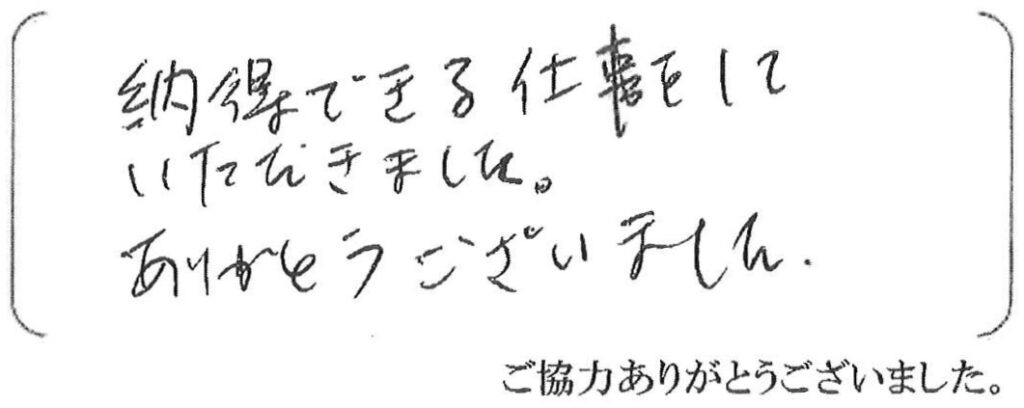 納得できる仕事をして
いただきました。
ありがとうございました.
ご協力ありがとうございました。